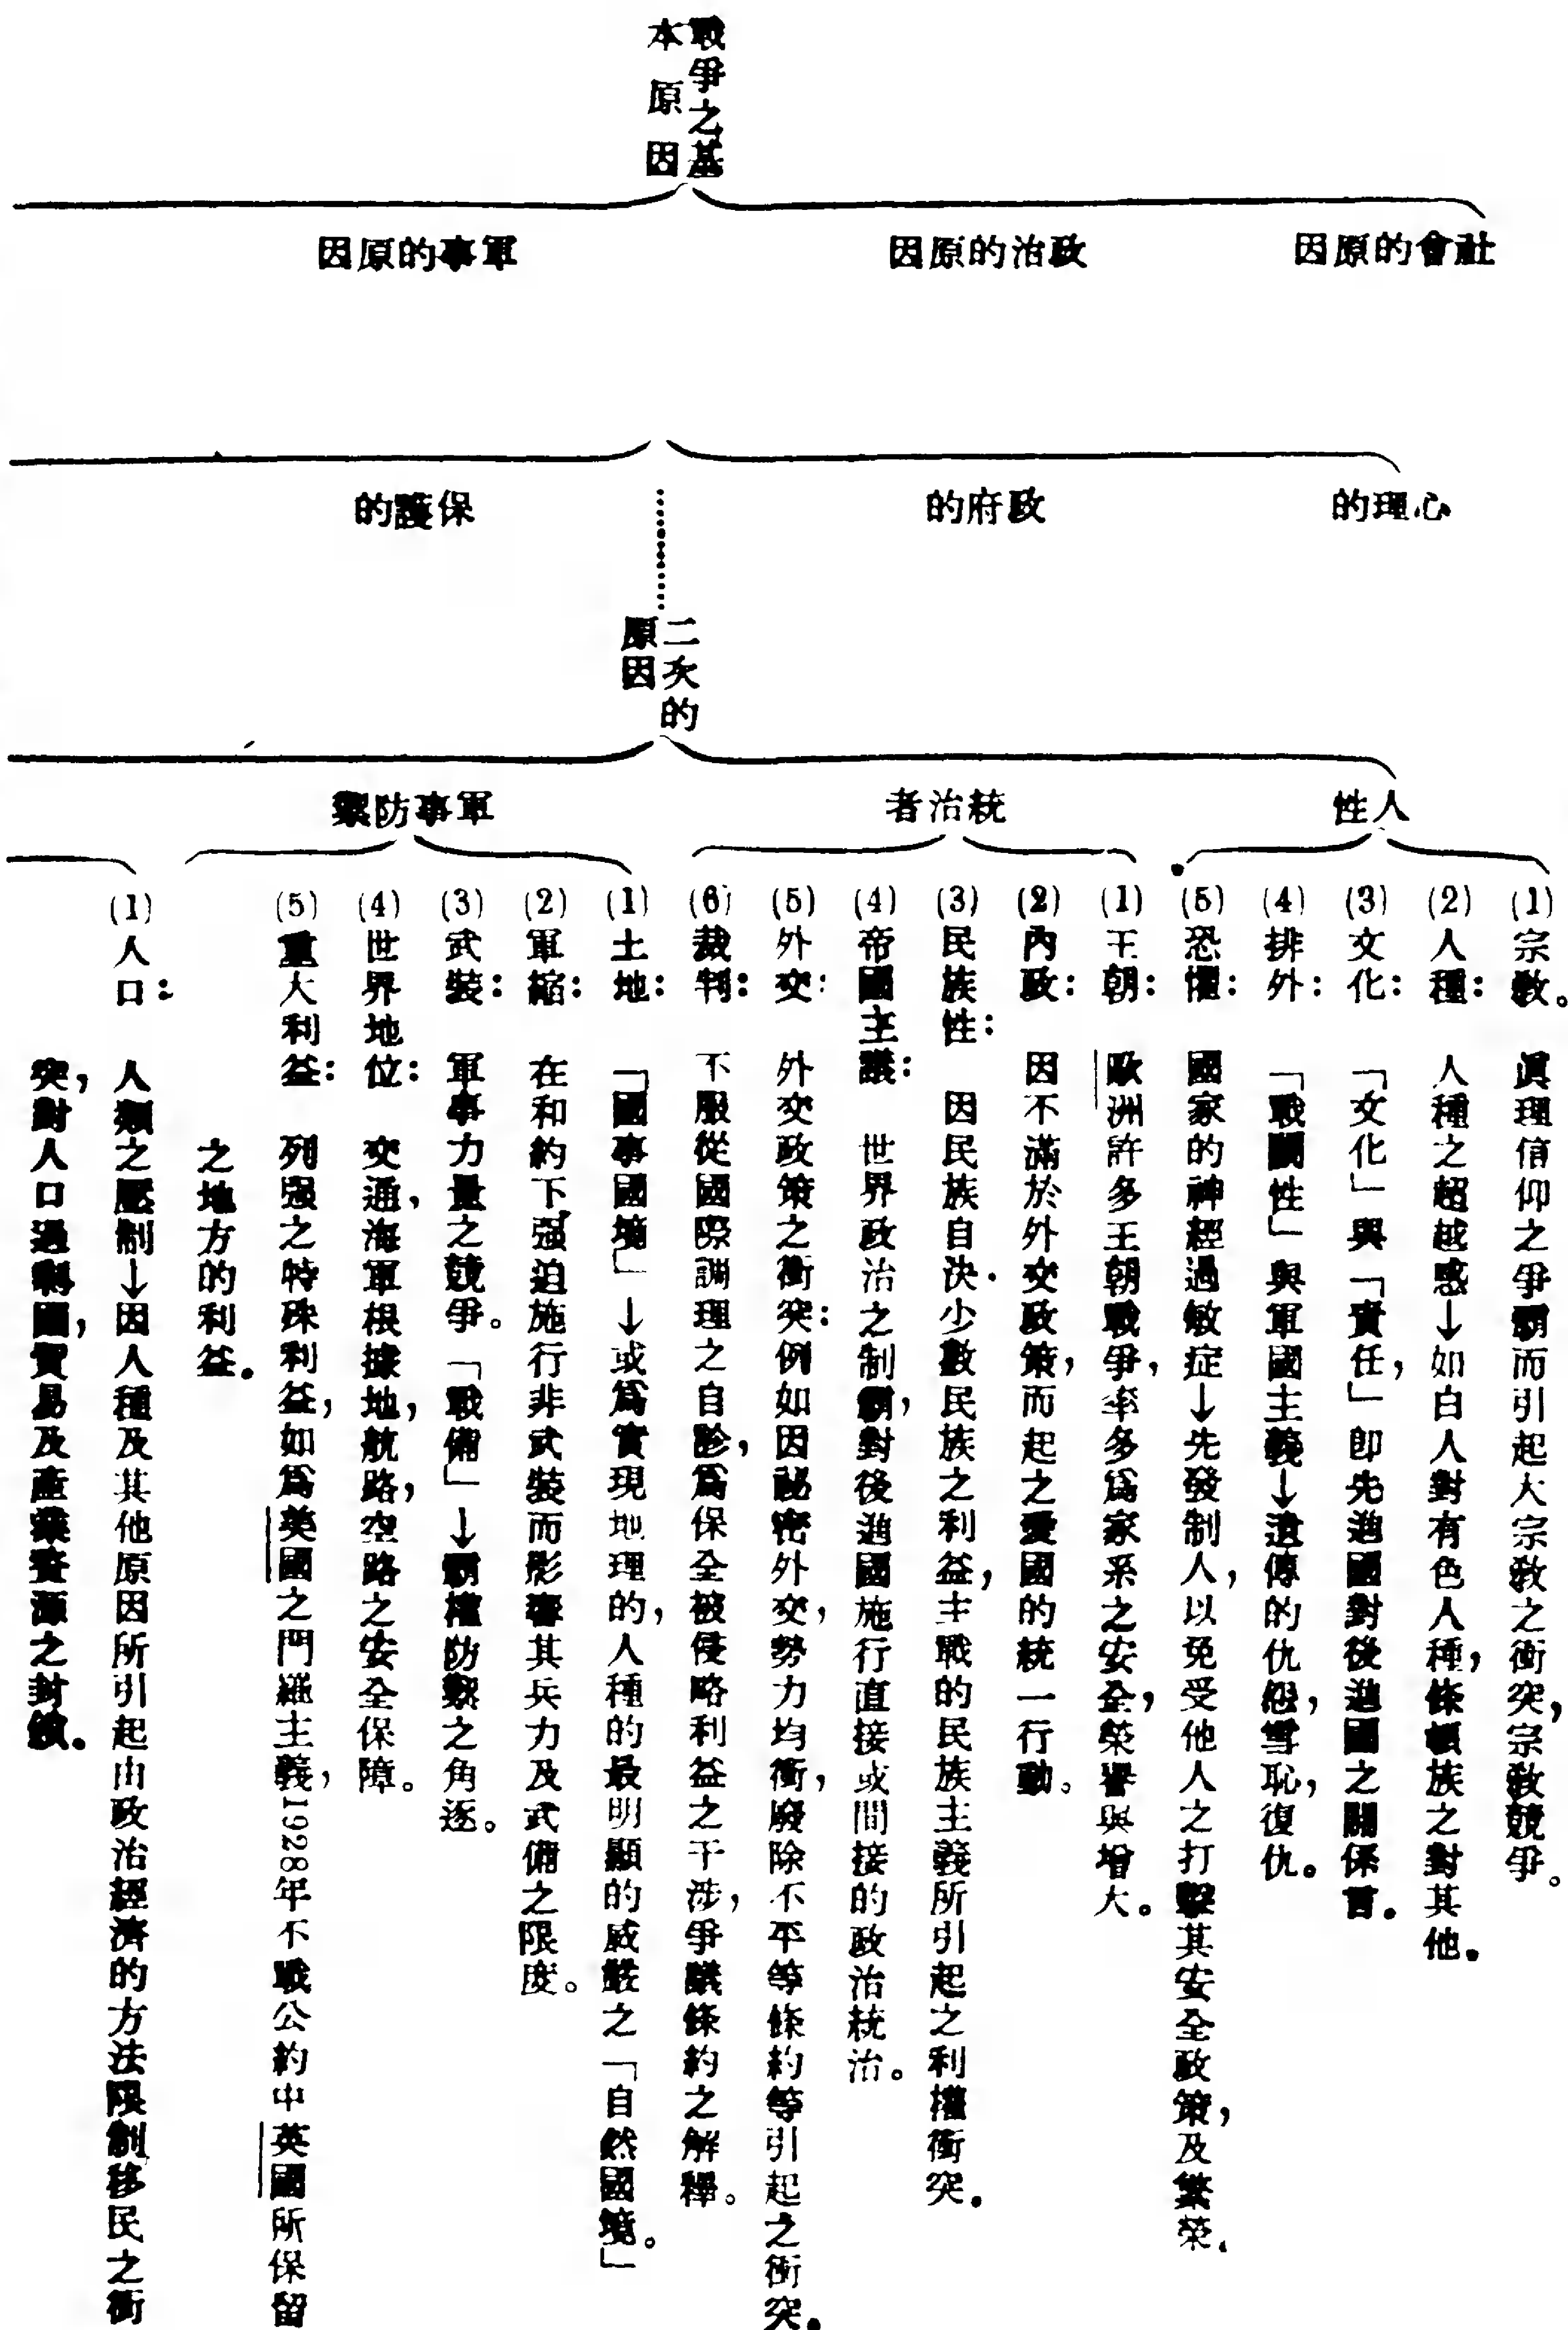 戰爭之基
本原因
社會的原因
政治的原因
軍事的原因
心理的
政府的
保護的
二次的
原因
人性
統治者
軍事防禦
(1)宗教。 眞理信仰之爭霸而引起大宗教之衝突,宗教競爭。
(2)人種: 人種之超越感→如白人對有色人種,條頓族之對其他。
(3)文化: 「文化」與「責任」,卽先進國對後進國之關係言。
(4)排外: 「戰鬭性」與軍國主義→遺傳的仇怨,雪恥,復仇。
(5)恐懼: 國家的神經過敏症→先發制人,以免受他人之打擊其安全政策,及繁榮.
(1)王朝: 歐洲許多王朝戰爭,率多爲家系之安全,榮譽與增大。
(2)內政: 因不滿於外交政策,而起之愛國的統一行動。
(3)民族性: 因民族自決.少數民族之利益,主戰的民族主義所引起之利權衝突.
(4)帝國主義: 世界政治之制霸,對後進國施行直接或間接的政治統治。
(5)外交: 外交政策之衝突:例如因祕密外交,勢力均衡,廢除不平等條約等引起之衝突.
(6)裁判: 不服從國際調理之自,爲保全被侵略利益之干涉,爭議條約之解釋。
(1)土地: 「國事國境」→或爲實現地理的,人種的最明顯的威嚴之「自然國境。」
(2)軍縮: 在和約下强迫施行非武裝而影響其兵力及武備之限度。
(3)武裝: 軍事力量之競爭。「戰備」→霸權防禦之角逐。
(4)世界地位: 交通,海軍根據地,航路,空路之安全保障。
(5)重大利益: 列强之特殊利益,如爲美國之門羅主義,1928年不戰公約中英國所保留
之地方的利益.
(1)人口: 人類之壓制→因人種及其他原因所引起由政治經濟的方法限制移民之衝
突,對人口過剩國,貿易及產業資源之封鎖.